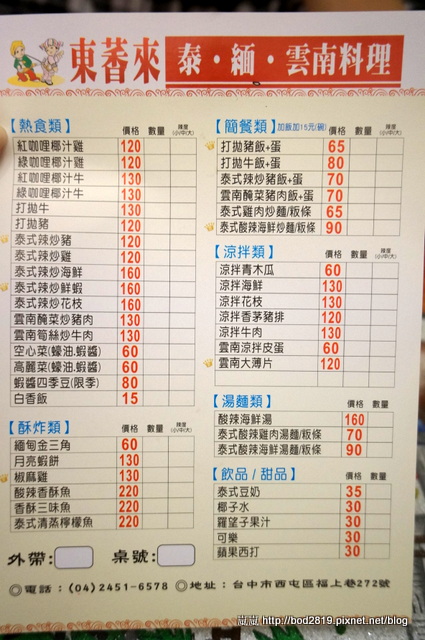 東蒼來 泰・緬・雲南料理
【熱食類】 價格 數量 辣度(小/中/大)
紅咖哩椰汁雞 120
綠咖哩椰汁雞 120
紅咖哩椰汁牛 130
綠咖哩椰汁牛 130
打拋牛 130
打拋豬 120
泰式辣炒豬 120
泰式辣炒雞 120
泰式辣炒海鮮 160
泰式辣炒鮮蝦 160
泰式辣炒花枝 160
雲南醃菜炒豬肉 130
雲南筍絲炒牛肉 130
空心菜(蠔油.蝦醬) 60
高麗菜(蠔油.蝦醬) 60
蝦醬四季豆(限季) 80
白香飯 15
【酥炸類】 價格 數量 辣度(小/中/大)
緬甸金三角 60
月亮蝦餅 130
椒麻雞 130
酸辣香酥魚 220
香酥三味魚 220
泰式清蒸檸檬魚 220
【簡餐類】加飯加15元/碗) 價格 數量 辣度(小/中/大)
打拋豬飯+蛋 65
打拋牛飯+蛋 80
泰式辣炒豬飯+蛋 70
雲南醃菜豬肉飯+蛋 70
泰式雞肉炒麵/粄條 65
泰式酸辣海鮮炒麵/粄條 90
【涼拌類】 價格 數量 辣度(小/中/大)
涼拌青木瓜 60
涼拌海鮮 130
涼拌花枝 130
涼拌香茅豬排 120
涼拌牛肉 130
雲南涼拌皮蛋 60
雲南大薄片 120
【湯麵類】 價格 數量 辣度(小/中/大)
酸辣海鮮湯 160
泰式酸辣雞肉湯麵/粄條 70
泰式酸辣海鮮湯麵/粄條 90
【飲品/甜品】 價格 數量
泰式豆奶 35
椰子水 30
羅望子果汁 30
可樂 30
蘋果西打 30
外帶: 桌號:
◎電話:(04)2451-6578 ◎地址:台中市西屯區福上巷272號
嵐嵐 http://bod2819.pixnet.net/blog